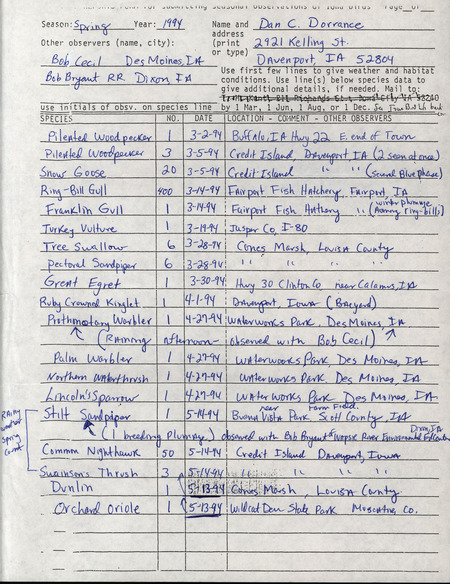 Season: Spring Year: 1994 Name and Dan C. Dorrance
address
Other observers (name, city): (print 2921 Kelling St.
or type) Davenport, IA 52804
Bob Cecil Des Moines, IA
Bob Bryant RR Dixon, IA
Use first few lines to give weather and habitat
conditions. Use line(s) below species data to
give additional details, if needed. Mail to:
use initials of obsv. on species line by 1 Mar, 1 Jun, 1 Aug, or 1 Dec.
SPECIES NO. DATE LOCATION - COMMENT - OTHER OBSERVERS
Pileated Woodpecker 1 3-2-94 Buffalo, IA Hwy 22 E. end of Town
Pileated Woodpecker 3 3-5-94 Credit Island Davenport IA (2 seen at once)
Snow Goose 20 3-5-94 Credit Island " " (several Blue phase)
Ring-Bill Gull 400 3-14-94 Fairport Fish Hatchery, Fairport, IA
Franklin Gull 1 3-14-94 Fairport Fish Hatchery " (winter plumage among ring-bills)
Turkey Vulture 1 3-19-94 Jasper Co, I-80
Tree Swallow 6 3-28-94 Cones Marsh, Louisa County
Pectoral Sandpiper 6 3-28-94 " " " "
Great Egret 1 3-30-94 Hwy 30 Clinton Co near Calamus, IA
Ruby Crowned Kinglet 1 4-1-94 Davenport, Iowa (Backyard)
Prothonotary Warbler 1 4-27-94 Waterworks Park, Des Moines, IA
(Raining afternoon - observed with Bob Cecil)
Palm Warbler 1 4-27-94 Waterworks Park, Des Moines, IA
Northern Waterthrush 1 4-27-94 Waterworks Park, Des Moines, IA
Lincoln's Sparrow 1 4-27-94 Waterworks Park, Des Moines, IA
Stilt Sandpiper 1 5-14-94 near Buena Vista Park Farm Field. Scott County, IA
(1 breeding plumage) observed with Bob Bryant of Wapsie River Environmental Ed Center Dixon, IA
Rainy weather Spring Count
Common Nighthawk 50 5-14-94 Credit Island Davenport, Iowa
Swainson's Thrush 3 5-14-94 " " " "
Dunlin 1 5-13-94 Cones Marsh, Louisa County
Orchard Oriole 1 5-13-94 Wildcat Den State Park Muscatine Co.